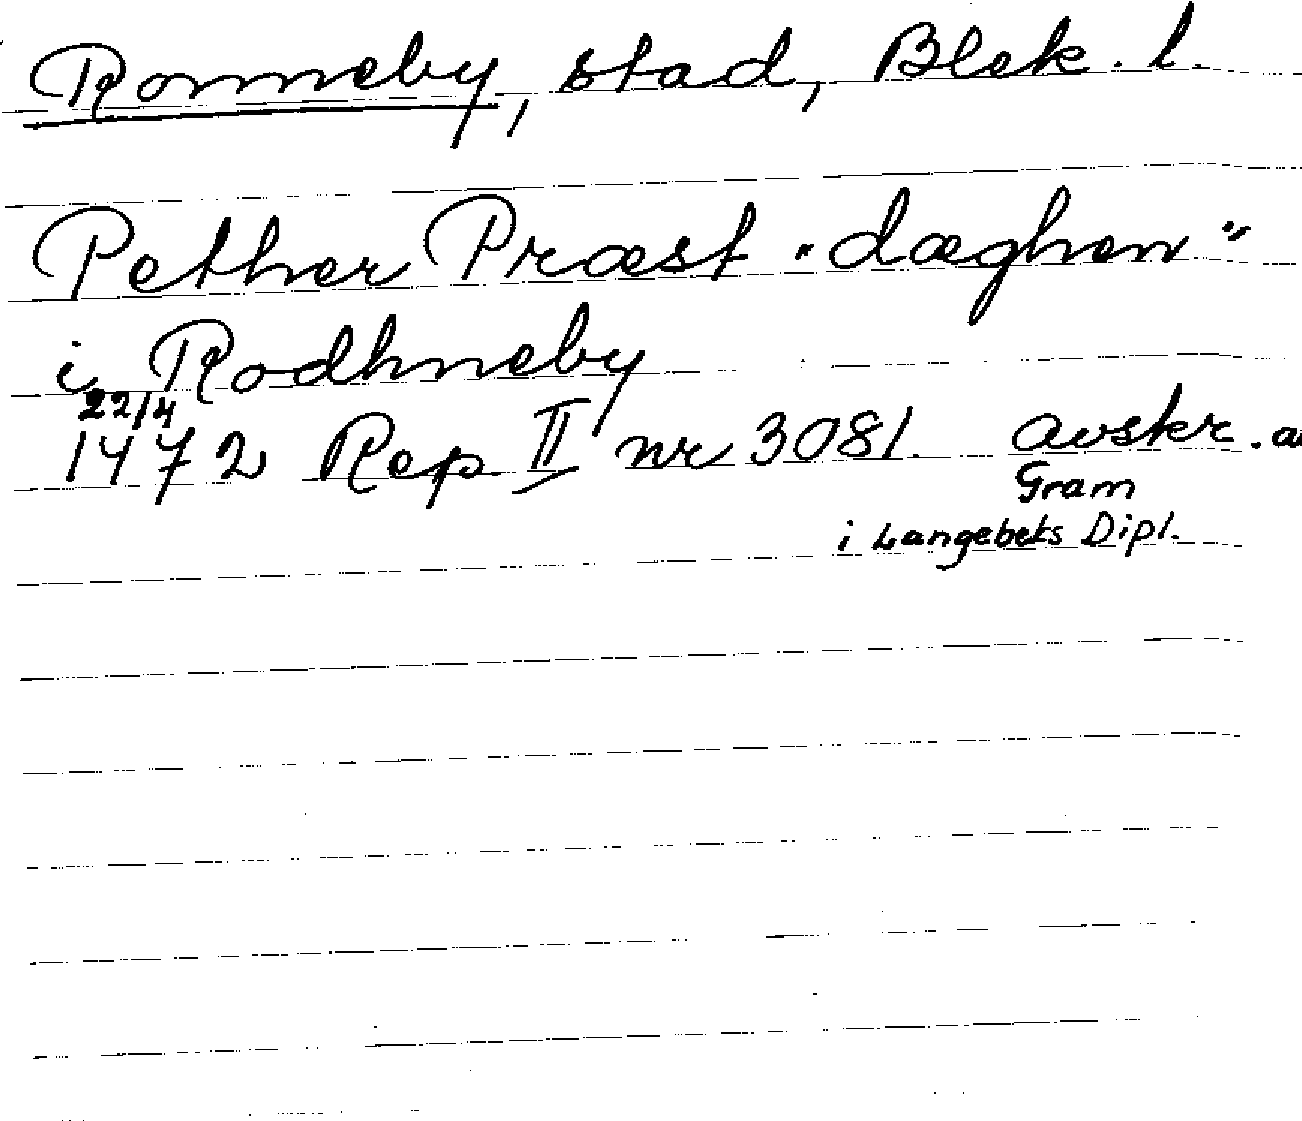 Ronneby, stad, Blek. l.
Pether Præst "dæghen"
i Rodhneby
22/4
1472 Rep II nr 3081. avskr. a
Gram
i Langebeks Dipl.